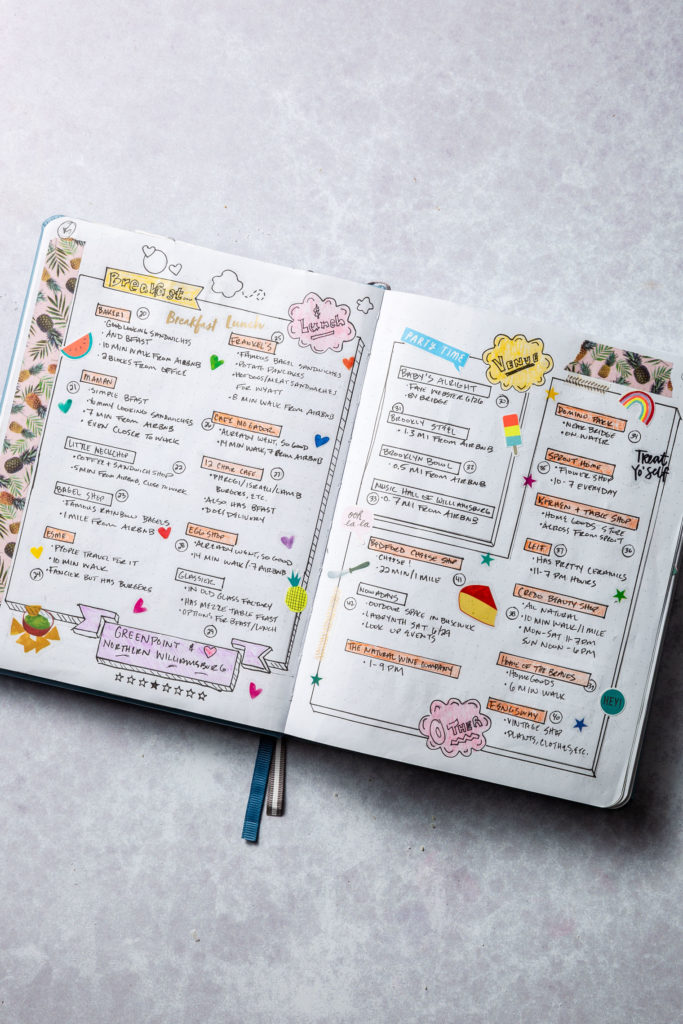 Breakfast...
Breakfast Lunch
& Lunch
BAKERI 20
· GOOD LOOKING SANDWICHES
AND BFAST
· 10 MIN WALK FROM AIRBNB
· 2 BLOCKS FROM OFFICE
21 MAMAN
· SIMPLE BFAST
· YUMMY LOOKING SANDWICHES
· 7 MIN FROM AIRBNB
· EVEN CLOSER TO WORK
LITTLE NECKCHOP 22
· COFFEE + SANDWICH SHOP
· 5 MIN FROM AIRBNB, CLOSE TO WORK
BAGEL SHOP 23
· FAMOUS RAINBOW BAGELS
· 1 MILE FROM AIRBNB
ESME
· PEOPLE TRAVEL FOR IT
· 10 MIN WALK
24 · FANCIER BUT HAS BURGERS
FRANKEL'S 25
· FAMOUS BAGEL SANDWICHES
· POTATO PANCAKES
· HOTDOGS/MEAT SANDWICHES
FOR WYATT
· 8 MIN WALK FROM AIRBNB
26 CAFE MOGADOR
· ALREADY WENT, SO GOOD
· 14 MIN WALK, 7 AIRBNB
12 CHAIR CAFE 27
BURGERS, ETC.
· ALSO HAS BFAST
· DOE/DELIVERY
28 EGG SHOP
· ALREADY WENT, SO GOOD
· 14 MIN WALK/7 AIRBNB
GLASSERIE
· IN OLD GLASS FACTORY
· HAS MEZZE TABLE FEAST
· OPTIONS FOR BFAST/LUNCH
29
GREENPOINT &
NORTHERN WILLIAMSBURG
PARTY TIME
VENUE
BABY'S ALRIGHT
· FAYE WEBSTER 6/26 30
· BY BRIDGE
31
BROOKLYN STEEL
· 1.3 MI FROM AIRBNB
BROOKLYN BOWL 32
· 0.5 MI FROM AIRBNB
MUSIC HALL OF WILLIAMSBURG
33 · 0.7 MI FROM AIRBNB
ooh
la la
BEDFORD CHEESE SHOP
· CHEESE!
· 22 MIN/1 MILE 41
NOWADAYS
42 · OUTDOOR SPACE IN BUSHWICK
· LABYRINTH SAT 6/29
· LOOK UP EVENTS
THE NATURAL WINE COMPANY
· 1-9 PM
OTHER
DOMINO PARK
· NEAR BRIDGE
· ON WATER 34
Treat
Yo'self
35 SPROUT HOME
· FLOWER SHOP
· 10-7 EVERYDAY
KITCHEN + TABLE SHOP
· HOME GOODS STORE
· ACROSS FROM SPROUT
LEIF 37 36
· HAS PRETTY CERAMICS
· 11-7 PM HOURS
CREDO BEAUTY SHOP
38 · ALL NATURAL
· 10 MIN WALK/1 MILE
· MON-SAT 11-7PM
SUN NOON-6PM
HOME OF THE BRAVES
· HOME GOODS 39
· 6 MIN WALK
HEY!
40
· VINTAGE SHOP
· PLANTS, CLOTHES, ETC.